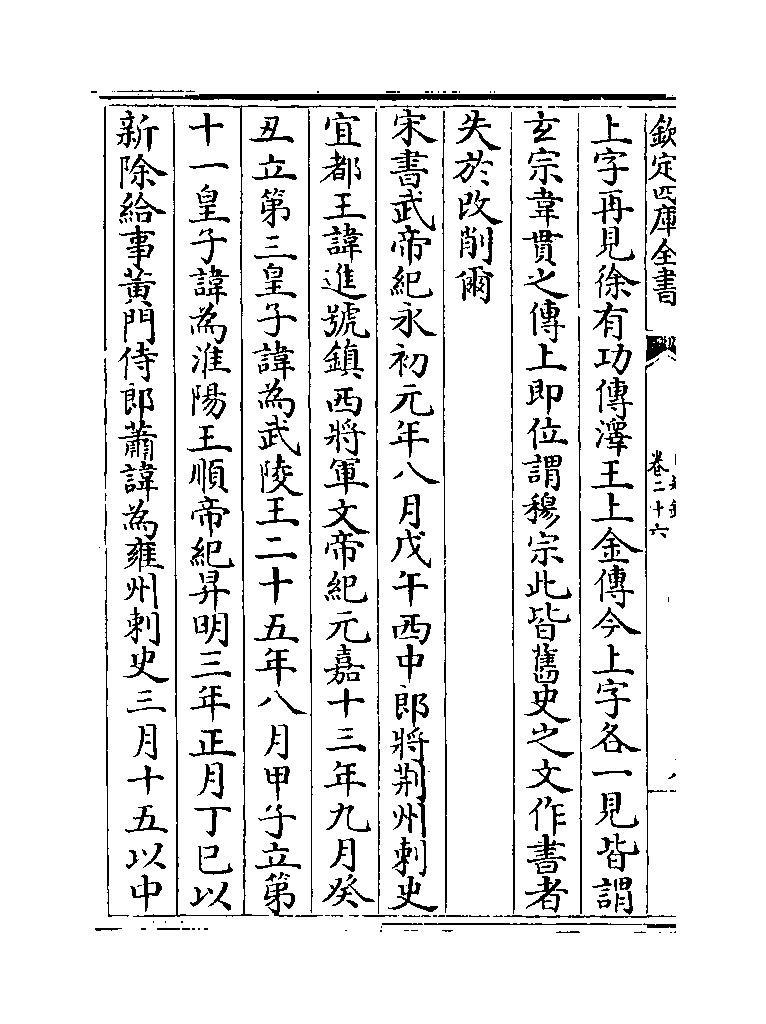 欽定四庫全書
卷二十六
上字再見徐有功傳澤王上金傳今上字各一見皆謂
玄宗韋貫之傳上即位謂穆宗此皆舊史之文作書者
失於改削爾
宋書武帝紀永初元年八月戊午西中郎將荆州刺史
宜都王諱進號鎮西將軍文帝紀元嘉十三年九月癸
丑立第三皇子諱為武陵王二十五年八月甲子立第
十一皇子諱為淮陽王順帝紀昇明三年正月丁巳以
新除給事黄門侍郎蕭諱為雍州刺史三月十五以中